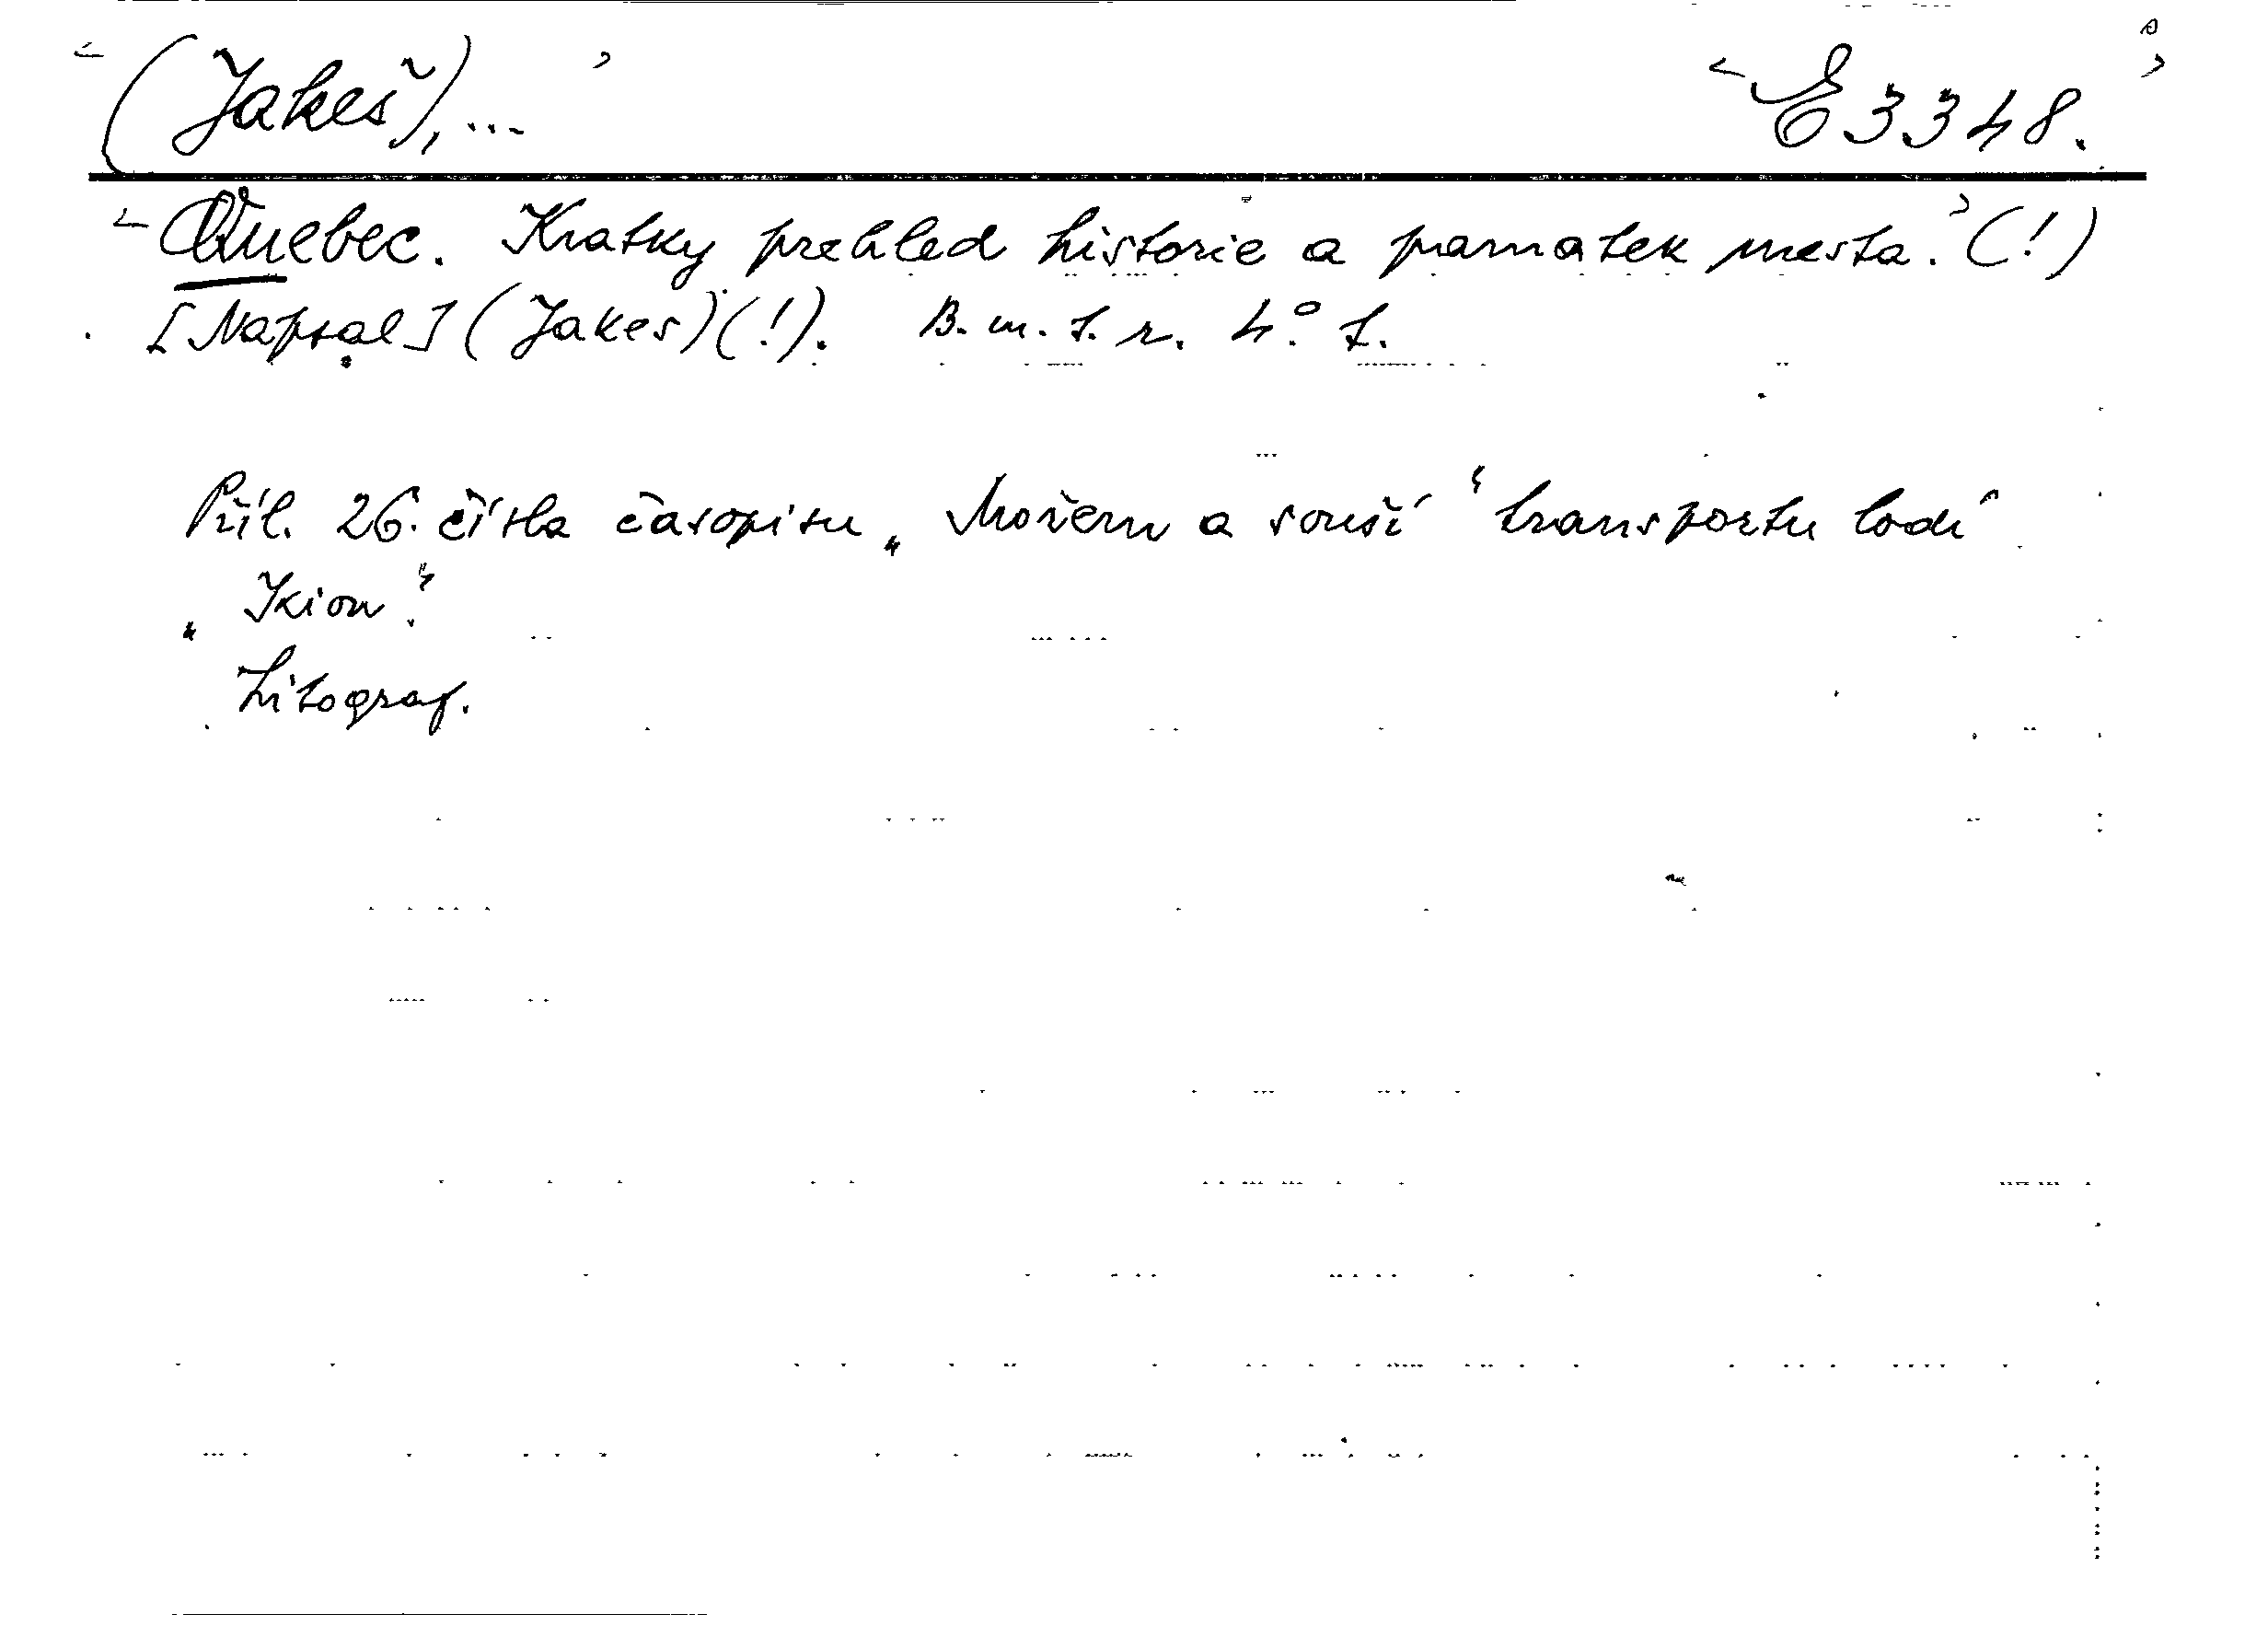 (Jakeš), ... E 3348.
Quebec. Kratky prehled historie a pamatek mesta. (!)
[Napsal] (Jakes) (!). B. m. t. r. 4°. 1.
Příl. 26. čísla časopisu „Mořem a souší“ transportu lodi
„Ixion“.
Litograf.